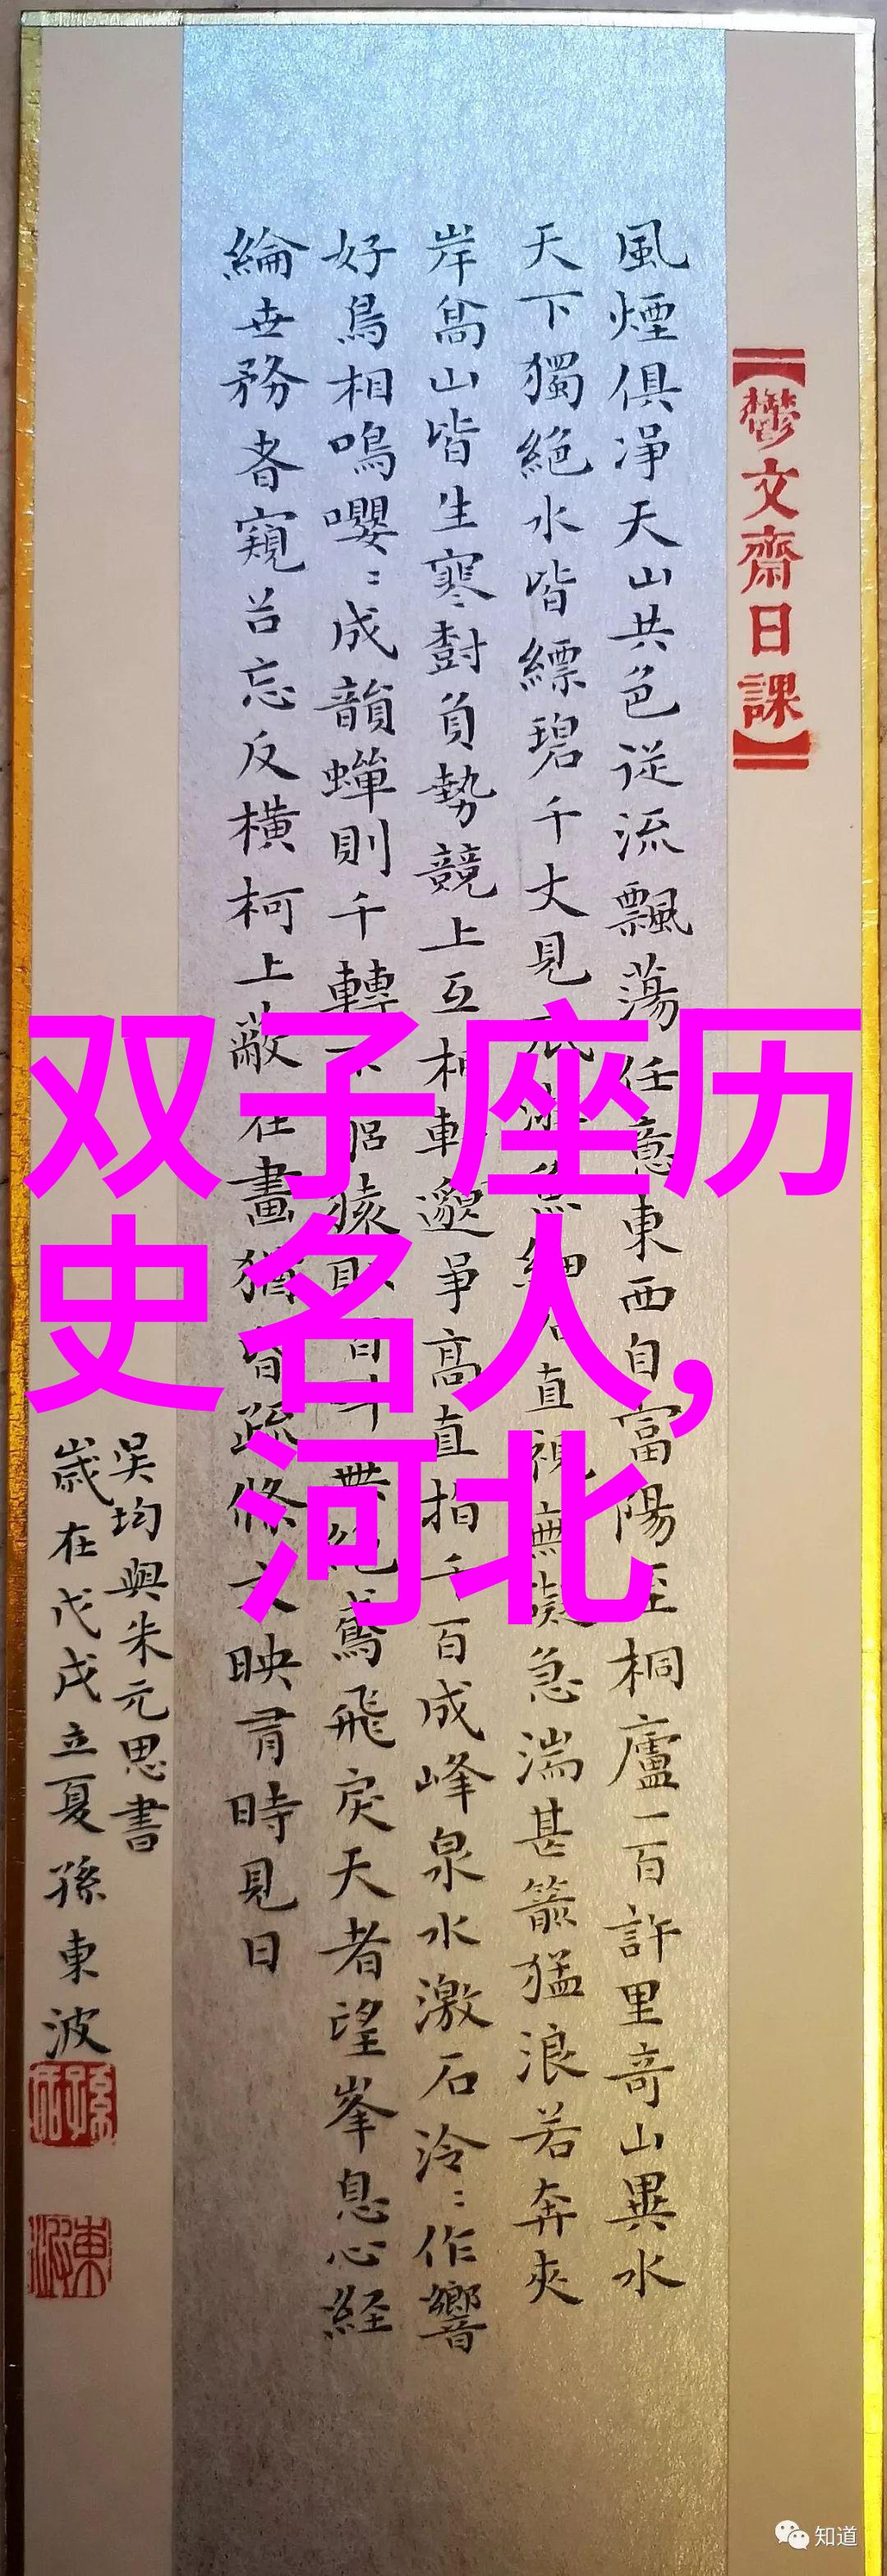 【鬱文齋日課】
風煙俱淨天山共色從流飄蕩任意東西自富陽至桐廬一百許里奇山異水
天下獨絕水皆縹碧千丈見底游魚細石直視無礙急湍甚箭猛浪若奔夾
岸高山皆生寒樹負勢競上互相軒邈爭高直指千百成峰泉水激石泠泠作響
好鳥相鳴嚶嚶成韻蟬則千轉不 猿則百叫無絕鳶飛戾天者望峯息心経
綸世務者窺谷忘反橫柯上蔽在晝猶昏疏條交映有時見日
吳均與朱元思書
歲在戊戌立夏孫東波
双子座历
史名人,
河北
知道